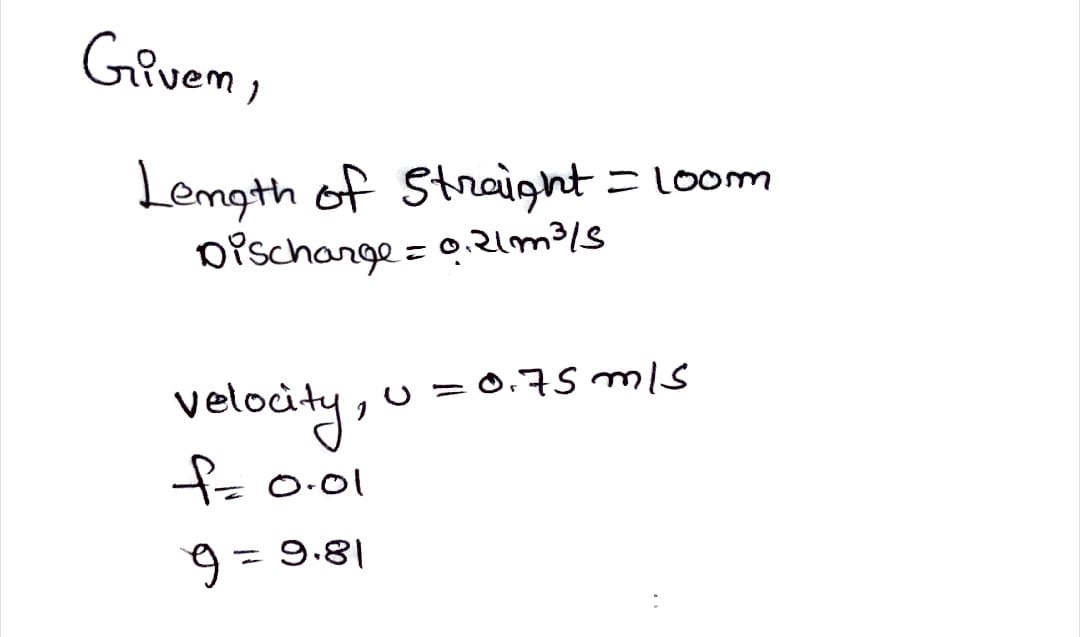 Given,
Length of Straight = 100m
Discharge = 0.21m³/s
velocity, υ = 0.75 m/s
f = 0.01
g = 9.81